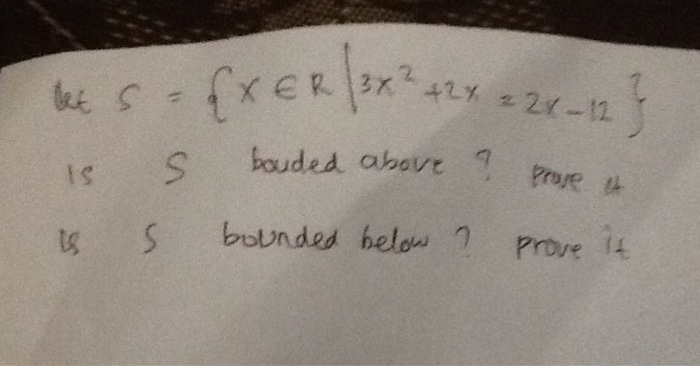 let S = {x ∈ R | 3x² + 2x = 2x - 12}
is S bouded above ? prove it
is S bounded below ? prove it